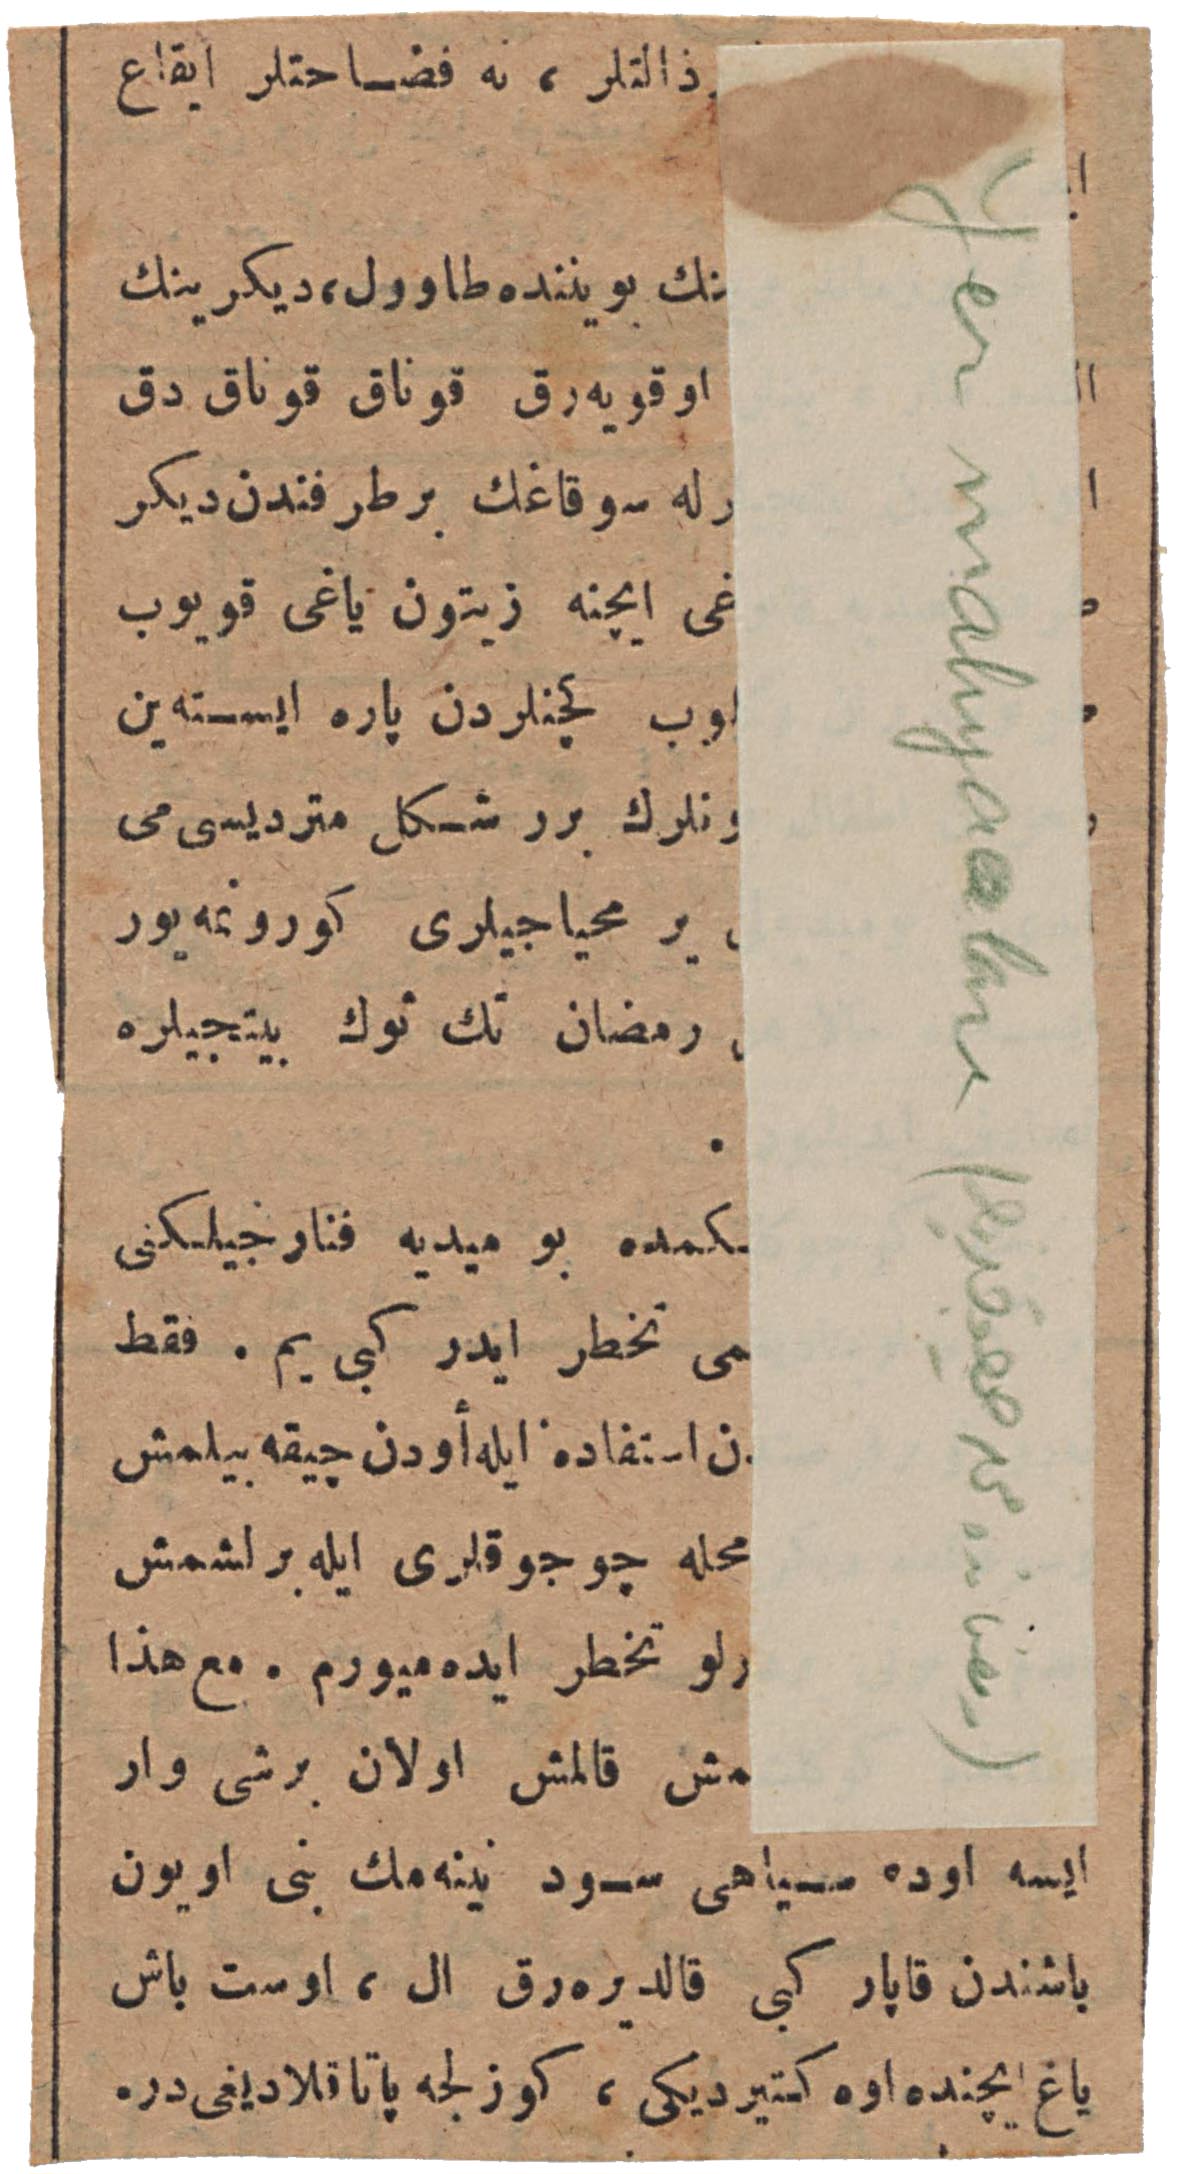 ذالتلر ، نه فضاحتلر ایقاع
نك بویننده طاوول، دیكرینك
اوقویه‌رق قوناق قوناق دق
رله سوقاغك بر طرفندن دیكر
غی ایچنه زیتون یاغی قویوب
وب كچنلردن پاره ایسته‌ین
ونلرك برر شكل متردیسی می
یر محیاجیلری كورونمه‌یور
رمضان تك توك بیتجیلره
.
كمده بو میدیه فنارجیلكنی
می تخطر ایدر كبی یم . فقط
ن استفاده ایله أودن چیقه بیلمش
محله چوجوقلری ایله برلشمش
رلو تخطر ایده‌میورم . مع هذا
مش قالمش اولان برشی وار
ایسه اوده سیاهی سود نینه‌مك بنی اویون
باشندن قاپار كبی قالدیره‌رق ال ، اوست باش
یاغ ایچنده اوه كتیردیكی ، كوزلجه پاتاقلادیغی دره
Yer mahyaaları